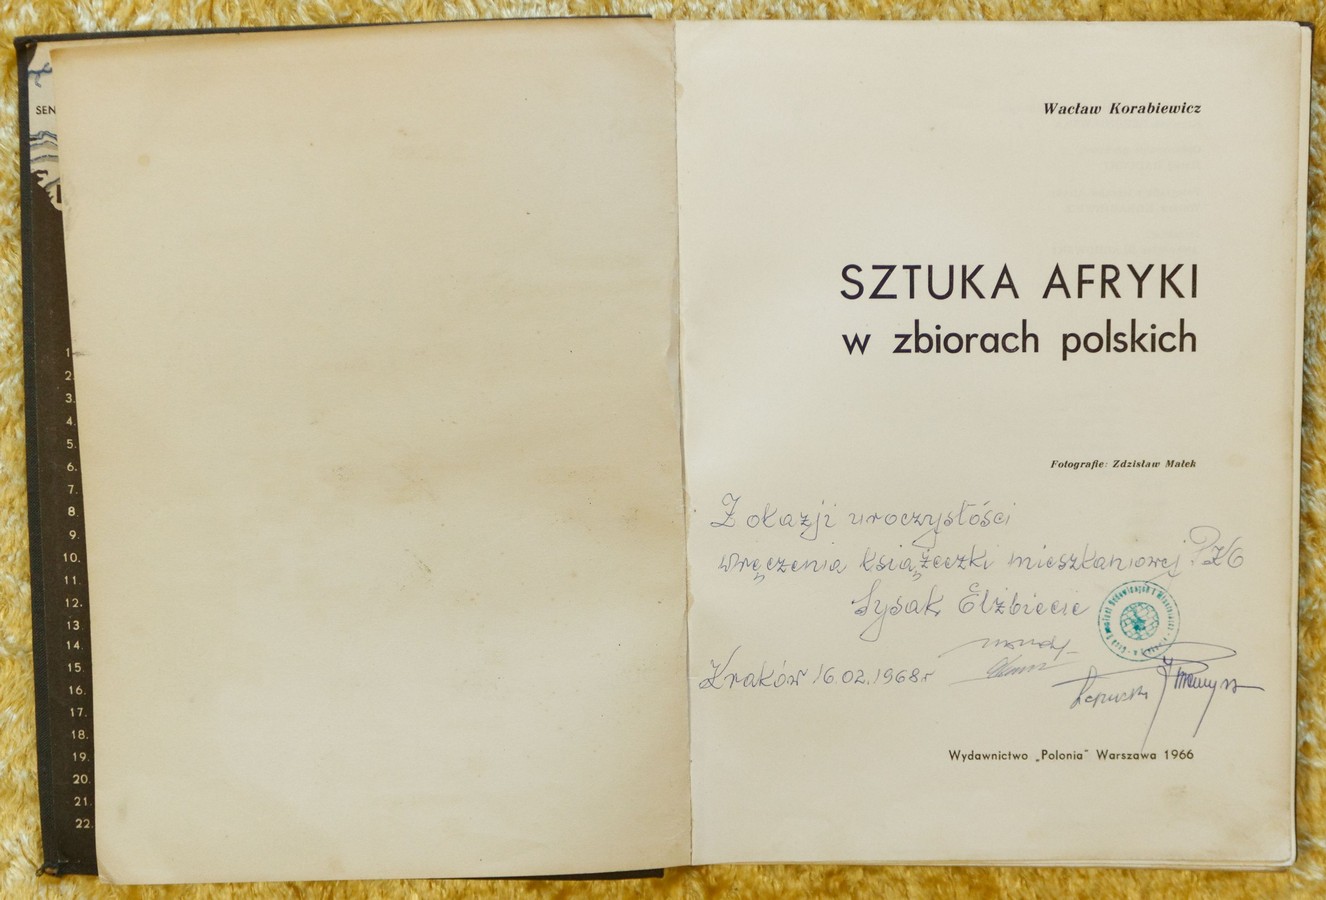 SEN
1
2.
3.
4.
5.
6.
7.
8.
9.
10.
11.
12.
13.
14.
15.
16.
17.
18.
19.
20.
21.
22.
Wacław Korabiewicz
SZTUKA AFRYKI
w zbiorach polskich
Fotografie: Zdzisław Małek
Z okazji uroczystości
wręczenia książeczki mieszkaniowej PKO
Łysak Elżbiecie
Kraków 16.02.1968r
Wydawnictwo „Polonia" Warszawa 1966